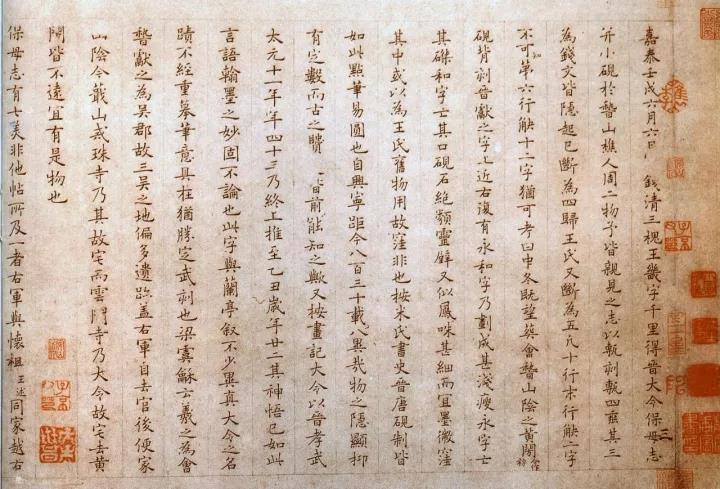 嘉泰壬戌六月六日錢清三槐王畿字千里得晉大令保母志
并小硯於嵇山樵人周二物予皆親見之志以甎刻甎四垂其三
為錢文皆隱起已斷為四歸王氏又斷為五凡十行末行缺二字
不可知第六行缺十二字猶可考曰中冬既望葬會嵇山陰之黃閍
硯背刻晉獻之字上近右復有永和字乃劃成甚淺瘦永字亡
其磔和字亡其口硯石絕類靈璧又似鳳咮甚細而宜墨微窪
其中或以為王氏舊物用故窪非也按米氏書史晉唐硯制皆
如此點筆易圓也自興寧距今八百三十載八異哉物之隱顯抑
有定數而古之賢百前能知之歟又按畫記大令以晉孝武
太元十一年年四十三乃終上推至乙丑歲年廿二其神悟已如此
言語翰墨之妙固不論也此字與蘭亭敘不少異真大令之名
蹟不經重摹筆意具在猶勝定武刻也梁虞龢云羲之為會
嵇獻之為吳郡故三吳之地偏多遺跡蓋右軍自去官後便家
山陰今蕺山戒珠寺乃其故宅而雲門寺乃大令故宅去黃
閍皆不遠宜有是物也
保母志有七美非他帖所及一者右軍與懷祖王述同家越右